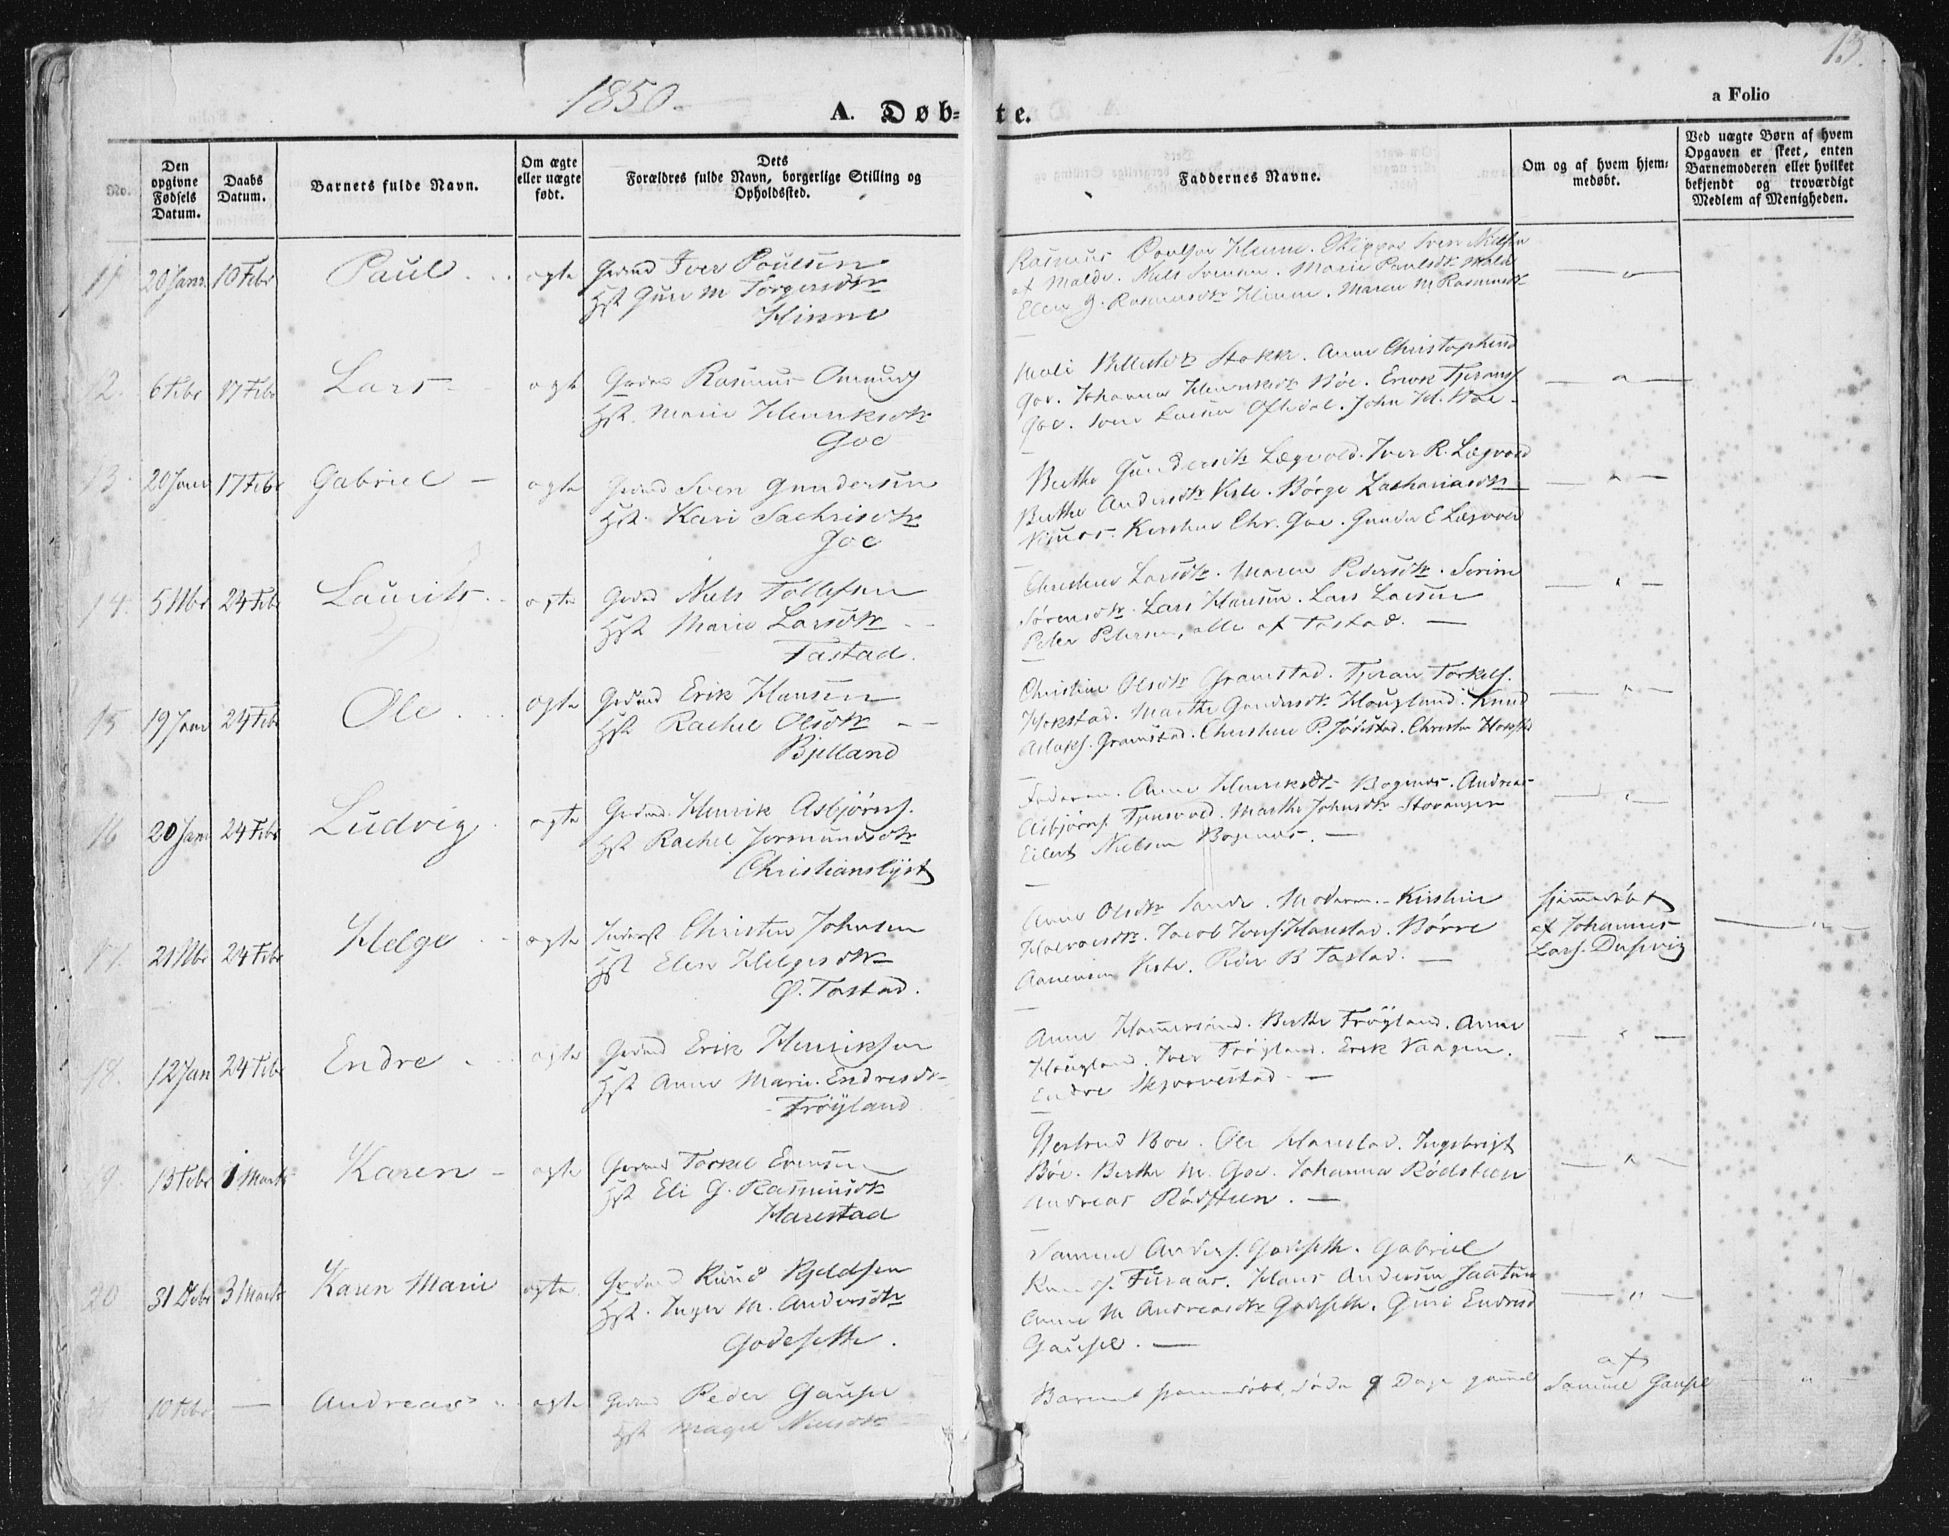 13.
1850.
A. Døb-
te.
a Folio
No.
Den opgivne Fødsels Datum.
Daabs Datum.
Barnets fulde Navn.
Om ægte eller uægte født.
Dets Forældres fulde Navn, borgerlige Stilling og Opholdssted.
Faddernes Navne.
Om og af hvem hjem-
medøbt.
Ved uægte Børn af hvem Opgaven er skeet, enten Barnemoderen eller hvilket bekjendt og troværdigt Medlem af Menigheden.
11 20 Janr 10 Febr Paul ægte
Grdmd Iver Poulsen
Hst Guri M Torgersdtr
Hinne
Rasmus Poulsen Hinne. Sven Nielsen
af Malde. Niels Svensen. Marie Paulsdtr Malde
Elen G. Rasmusdtr Hinne. Maren M. Rasmusdtr
12. 6 Febr 17 Febr Lars ægte
Rasmus
Hst. Marie Henriksdtr
Goe
Stokke. Anne
Goe. Johanna Henriksdtr Bøe.
Goe. Sven Larsen Oftedal. John H. Bøe
13. 20 Janr 17 Febr Gabriel ægte
Grdmd Sven Gundersen
Hst. Kari Sachrisdtr
Goe
Berthe Gundersdtr Lægvold. Iver R. Lægvold
Berthe Andersdtr Viste. Børge Zachariasdtr
Chr. Goe. E Lægvold
14. 5 Nbr 24 Febr Laurits ægte
Grdmd Niels Tollefsen
Hst Marie Larsdtr
Tastad.
Larsdtr. Maren Pedersdtr. Serine
Sørensdtr. Lars Hansen. Lars Larsen
Peter Petersen, alle af Tastad.
15 19 Janr 24 Febr Ole ægte
Grdmd Erik Hansen
Hst Rachel Olsdtr
Bjelland
Christine Olsdtr Gramstad. Tjeran Torkels.
Hokstad. Marthe Gundersdtr Hougland. Knud
Gramstad. P. Jødestad.
16 20 Janr 24 Febr Ludvig ægte
Grdmd. Henrik Asbjørns.
Hst Rachel Jormundsdtr
Christianslyst
Faderen. Anne Henriksdtr Bogenæs. Andreas
Asbjørns. Marthe Johnsdtr Stavanger
Eilert Nielsen Bogenæs.
17. 21 Nbr 24 Febr Helge ægte
Inderst Christen Johnsen
Hst Elen Helgesdtr
Ø. Tastad.
Anne Olsdtr Sande. Moderen. Kirstine
Jacob Ivers. Harestad. Børre
Aanensen Viste. Peder B Tastad.
hjemmedøbt
af Johannes
Lars. Dusevig
18. 12 Jan 24 Febr Endre ægte
Grdmd Erik Henriksen
Hst Anne Marie Endresdtr
Frøyland
Anne Hammersand. Berthe Frøyland. Anne
Hougland. Iver Frøyland. Erik Vaagen.
Endre Skjørvestad
19. 13 Febr 1 Marts Karen ægte
Grdmd Torkel Evensen
Hst Eli G. Rasmusdtr
Harestad
Gjertrud Boe. Ole Harestad. Ingebrigt
Bøe. Berthe M. Goe. Johanna Rødsteen
Andreas Rødsteen.
20 31 Debr 3 Marts Karen Marie ægte
Grdmd Knud Kjeldsen
Hst. Inger M. Andersdtr
Godesette.
Samuel Anders. Godesette. Gabriel
Knuds. Furaas. Hans Andersen
Anne M Andreasdtr Godesette. Guri Endresd
Gausel.
10 Febr Andreas ægte
Grdmd Peder Gausel
Hst Magel Nielsdtr
Barnet hjemmedøbt, døde 9 Dage gammel
af
Samuel Gausel